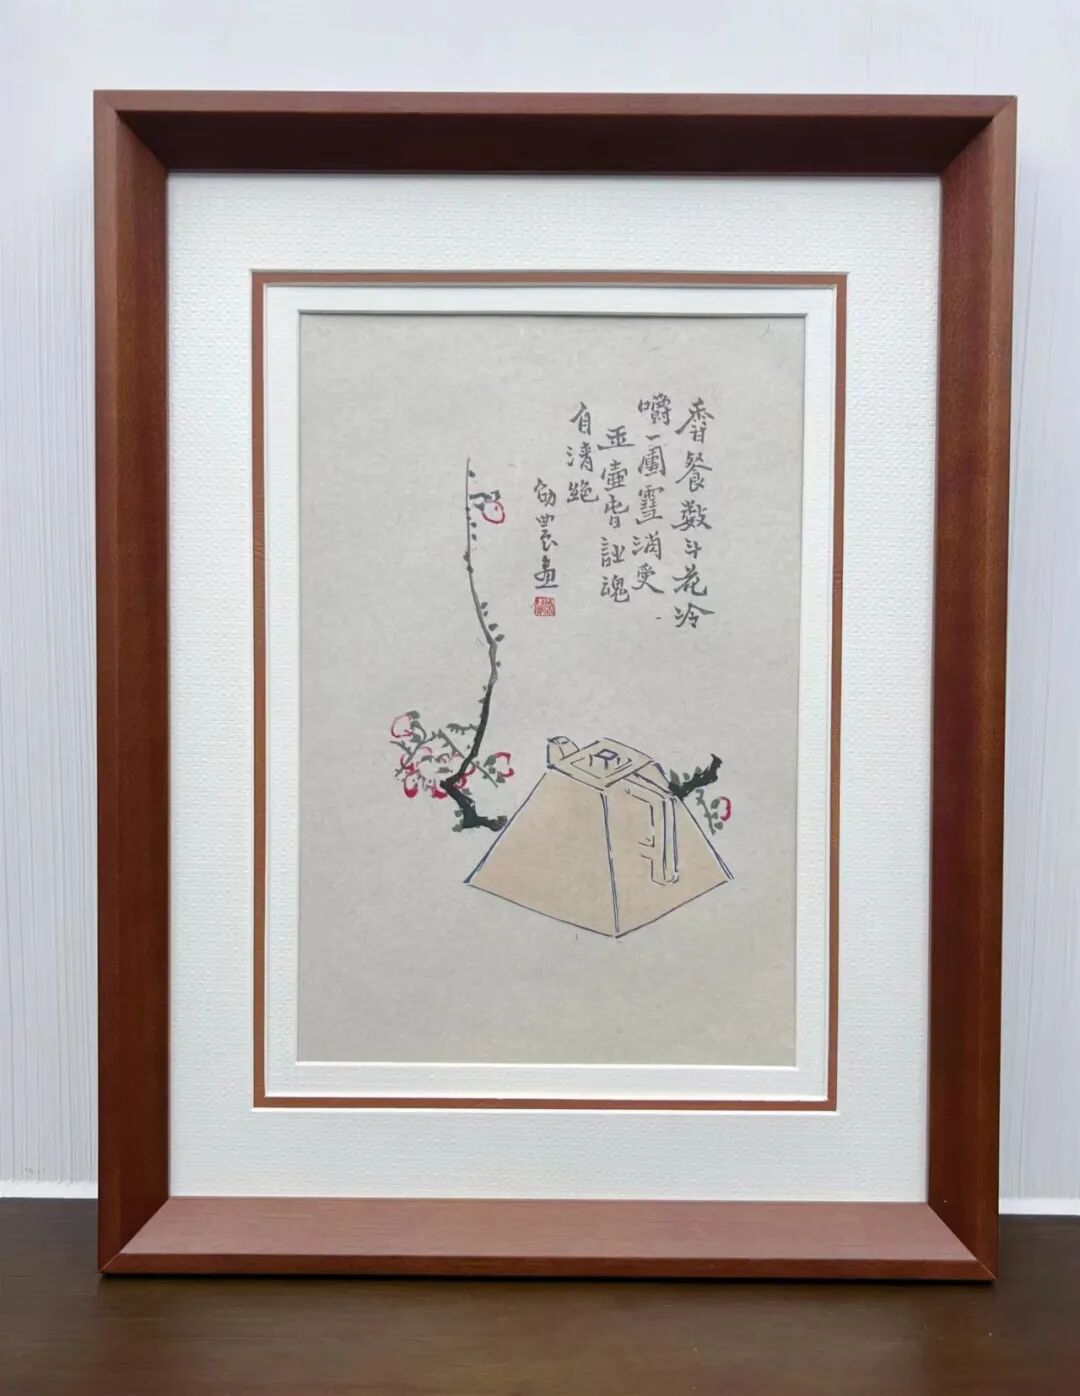 香餐数斗花冷
嚼一團雪消受
玉壺皆詩魂
自清絕
劬農畫